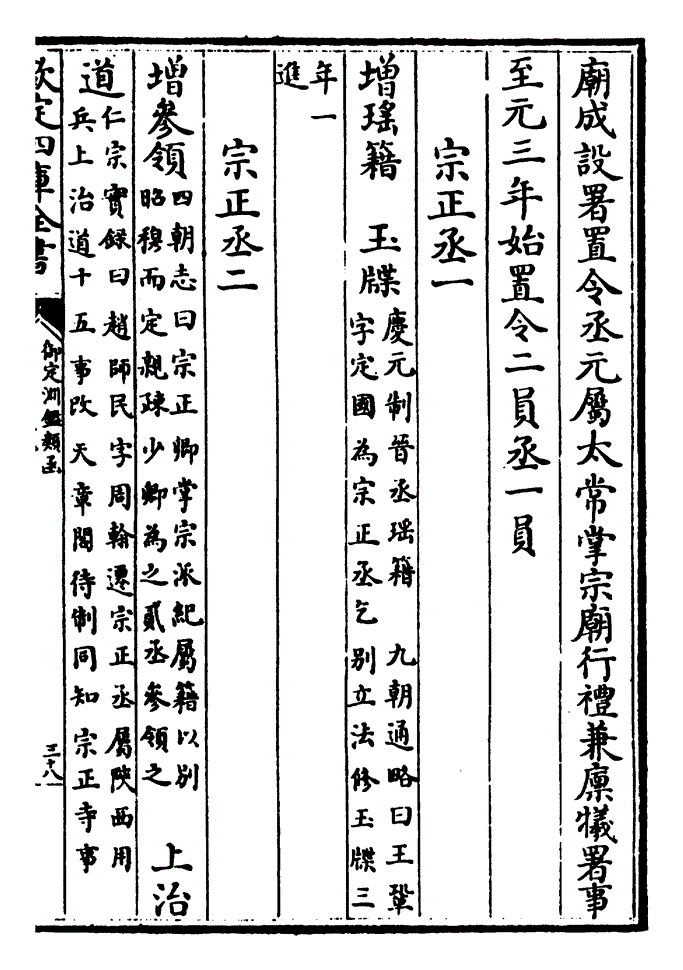 廟成設署置令丞元屬太常掌宗廟行禮兼廩犧署事
至元三年始置令二員丞一員
宗正丞一
增瑤籍 玉牒慶元制晉丞瑤籍 九朝通略曰王鞏
字定國為宗正丞乞 别立法修玉牒三
年一
進
宗正丞二
增參領四朝志曰宗正卿掌宗派紀屬籍以别
昭穆而定親疎少卿為之貳丞參領之 上治
道仁宗實錄曰趙師民字周翰遷宗正丞屬陜西用
兵上治道十五事改天章閣待制同知宗正寺事
欽定四庫全書
御定淵鑑類函
三十八